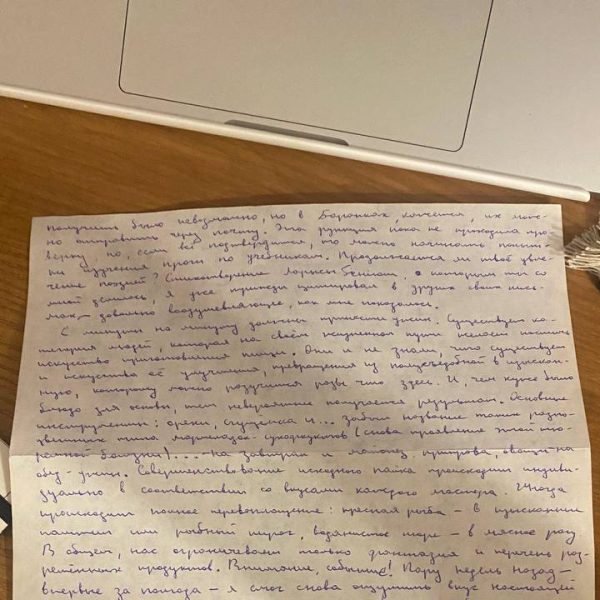 получить было невозможно, но в Боронках, кажется, их мож-
но отправить через почту. Эта функция пока не проходила про-
верку, но, если всё подтвердится, то можно начинать попыт-
ки изучения прози по учебникам. Продолжается ли твоё увле-
чение поэзией? Стихотворение Ларисы, о котором ты со
мной делилась, я уже трижды цитировал в других своих пись-
мах – довольно воодушевляющее, как мне показалось.
С минуты на минуту должны принести ужин. Существует ка-
тегория людей, которая на своём жизненном пути желает постичь
искусство приготовления пищи. Они и не знали, что существует
и искусство её улучшения, превращения из полусъедобной в изыскан-
ную, которому можно научиться разве что здесь. И, чем хуже было
блюдо для основы, тем невероятнее получается результат. Основные
инструменты: орехи, сгущёнка и... забыл название таких разно-
цветных типа мармеладок-сухофруктов (снова проявление этой
болезни)... на завтрак и майонез, приправа, овощи на
обед-ужин. Совершенствование исходного пайка происходит индиви-
дуально в соответствии со вкусами каждого мастера. Иногда
происходит полное перевоплощение: пресная рыба – в изысканный
паштет или рыбный пирог, водянистое пюре – в мясное рагу
В общем, нас ограничивали только фантазия и перечень раз-
решённых продуктов. Внимание, событие! Пару недель назад –
впервые за полгода – я смог снова ощутить вкус настоящей